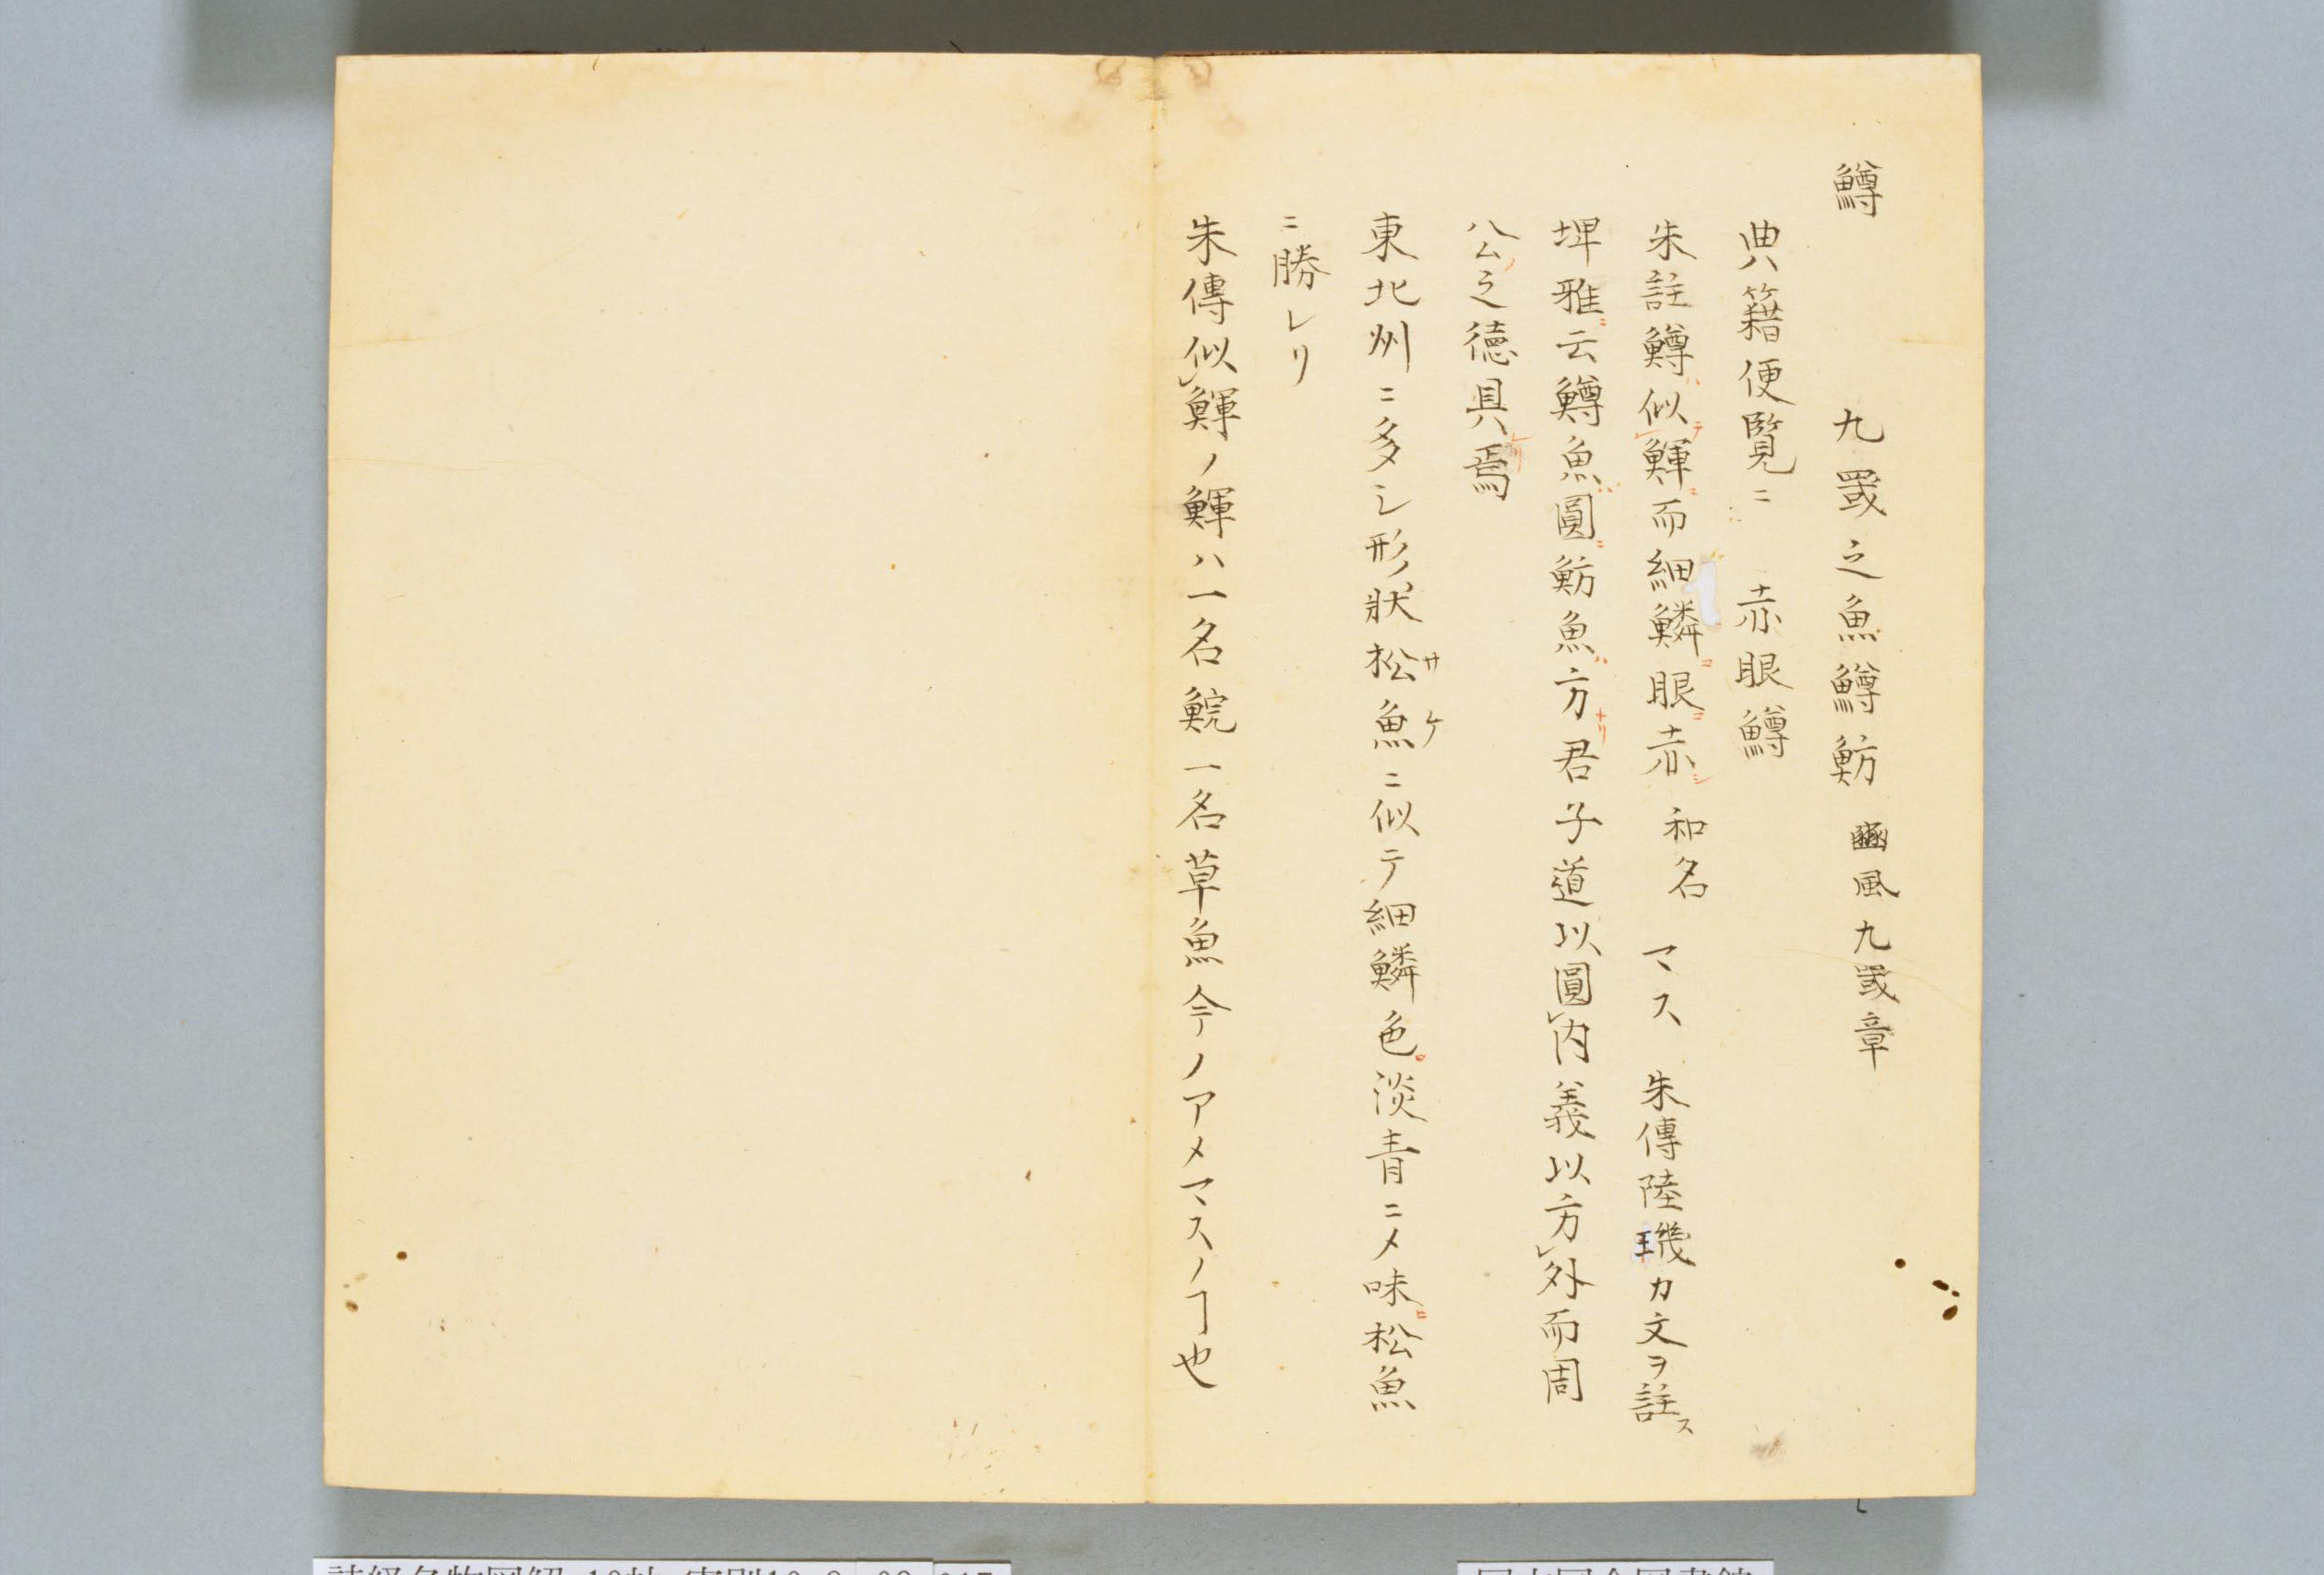 鱒　九罭之魚鱒魴　豳風九罭章
典籍便覧ニ　赤眼鱒
朱註鱒ハ似テ㆑鯶ニ而細鱗ヨ眼ニ赤シ　和名　マス　朱傳陸璣カ文ヲ註ス
埤雅ニ云鱒魚ハ圓ニ魴魚ハ方ナリ君子道以圓㆑内義以方㆑外而周
公ノ之徳具レリ焉
東北州ニ多シ形状松魚サケニ似テ細鱗色淡青ニメ味ヒ松魚
ニ勝レリ
朱傳似㆑鯶ノ鯶ハ一名鯇一名草魚今ノアメマスノヿ也